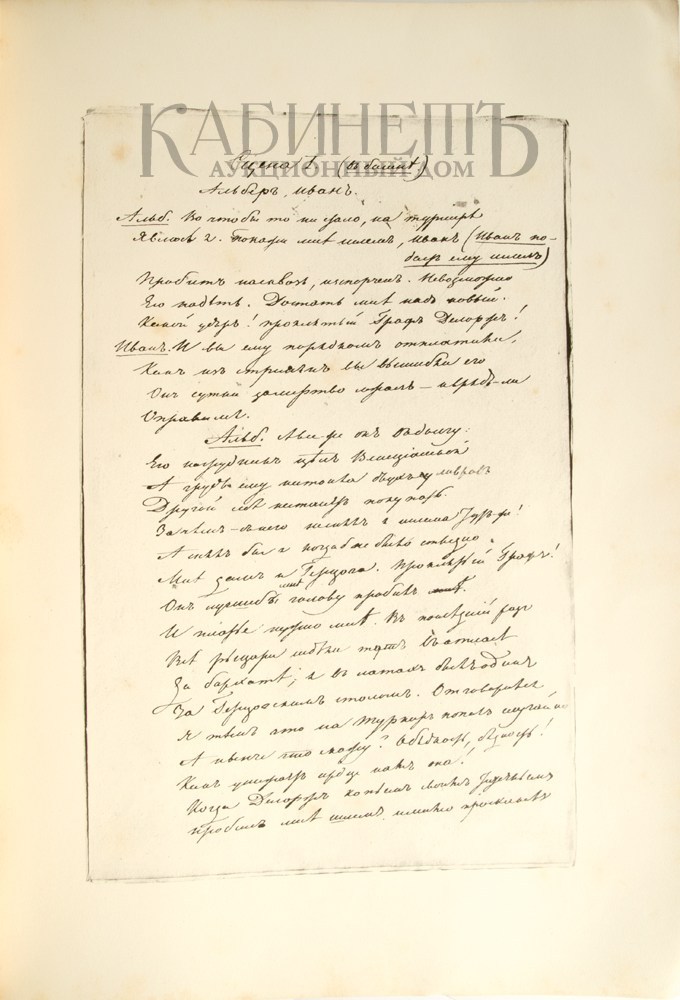 КАБИНЕТЪ
АУКЦИОННЫЙ ДОМ
Сцена 1 (въ башнѣ)
Альберъ, Иванъ.
Альб. Во что бы то ни стало, на турнирѣ
Явлюсь я. Покажи мнѣ шлемъ, Иванъ (Иванъ по-
даетъ ему шлемъ)
Пробитъ насквозь, испорченъ. Невозможно
Его надѣть. Достать мнѣ надо новый.
Какой ударъ! проклятый Графъ Делоржъ!
Иванъ. И вы ему порядкомъ отплатили,
Какъ изъ стремянъ вы вышибли его
Онъ сутки замертво лежалъ — и врядъ-ли
Оправился.
Альб. А все же онъ
Его нагрудникъ цѣлъ Венеціанской
А грудь ему
Другой себѣ не станетъ покупать.
Зачѣмъ съ него не снялъ я шлема тутъ-же!
А снялъ бы я когда бъ не было стыдно
Мнѣ дамъ и Герцога. Проклятый Графъ!
Онъ лучше бъ мнѣ голову пробилъ мнѣ.
И платье нужно мнѣ. Въ послѣдній разъ
Всѣ рыцари сидѣли тутъ въ атласѣ
Да бархатѣ; я въ латахъ былъ одинъ
За Герцогскимъ столомъ. Отговорился
Я тѣмъ что на турниръ попалъ случайно
А нынче что скажу? О бѣдность, бѣдность!
Какъ унижаетъ сердце намъ она!
Когда Делоржъ копьемъ своимъ тяжелымъ
Пробилъ мнѣ шлемъ и мимо проскакалъ